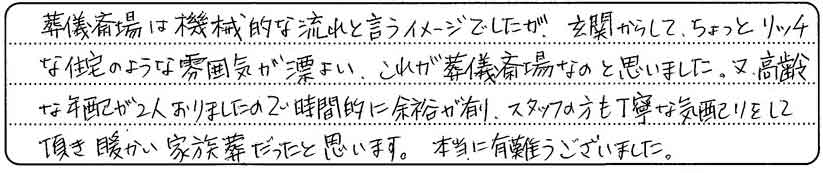 葬儀斎場は機械的な流れと言うイメージでしたが、玄関からして、ちょっとリッチ
な住宅のような雰囲気が漂よい、これが葬儀斎場なのと思いました。又、高齢
な年配が2人おりましたので時間的に余裕が有り、スタッフの方も丁寧な気配りをして
頂き暖かい家族葬だったと思います。本当に有難うございました。